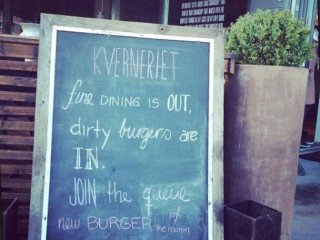 KVERNERIET
fine DINING IS OUT,
dirty burgers are
IN.
JOIN the queue
new BURGER of
the month